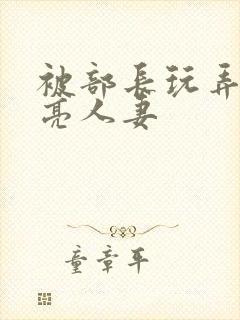 被部长玩弄
亮人妻
童章平